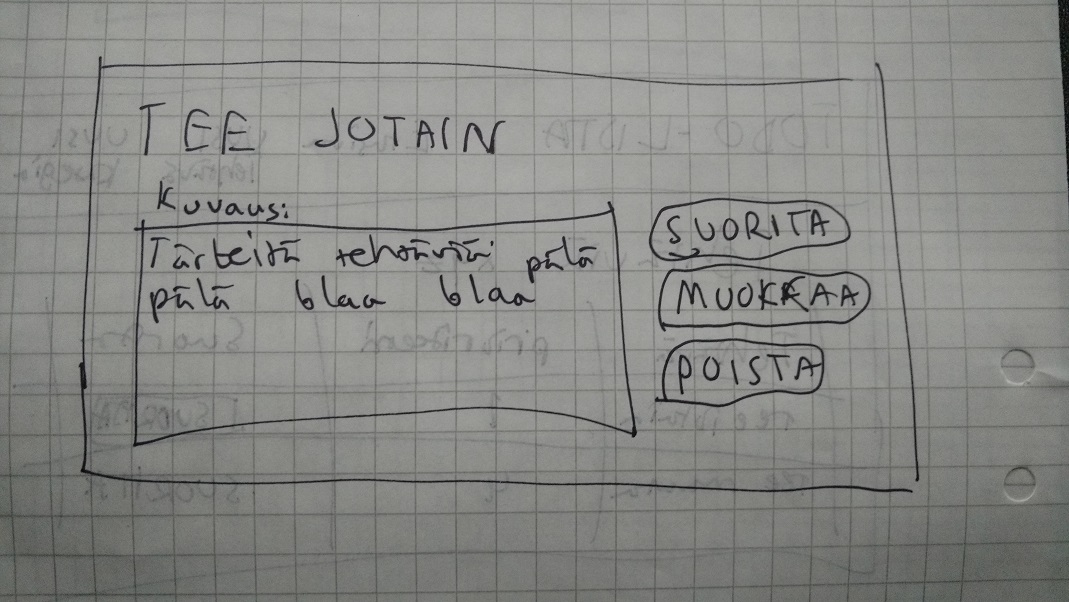 TEE JOTAIN
Kuvaus:
Tärkeitä tehtäviä pälä
pälä blaa blaa
SUORITA
MUOKKAA
POISTA